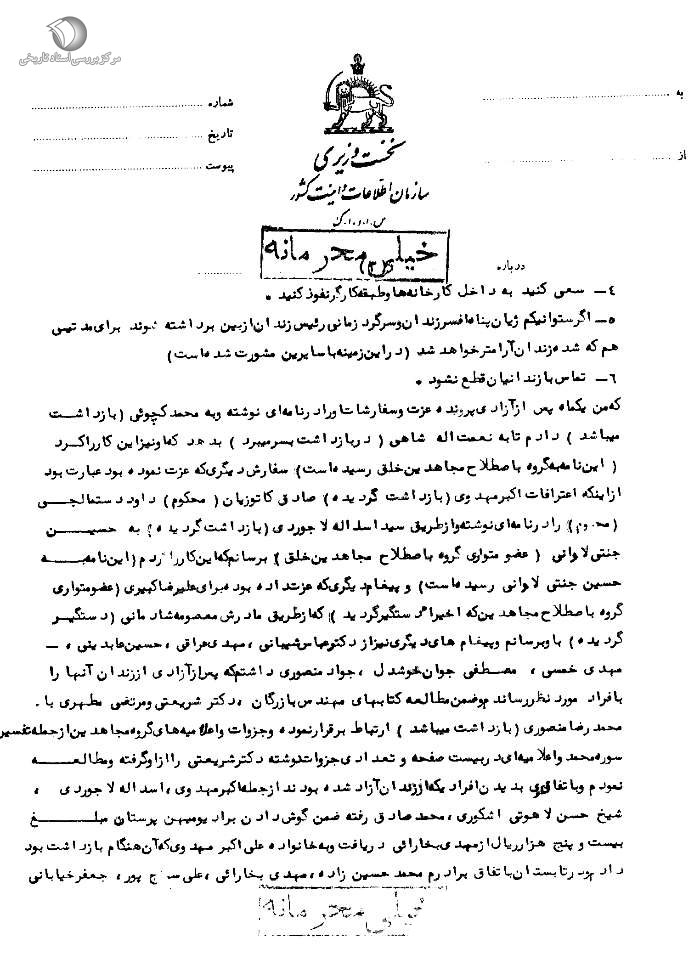 مرکز بررسی اسناد تاریخی
به
شماره
تاریخ
از
پیوست
نخست وزیری
سازمان اطلاعات و امنیت کشور
س.ا.و.ا.ک
خیلی محرمانه
درباره
٤ــ سعی کنید به داخل کارخانه‌ها و طبقه کارگر نفوذ کنید .
٥ــ اگر میتوانیکم ژیان پناه افسر زندان و سرگرد زمانی رئیس زندان از بین برداشته شوند برای مدتی
هم که شده زندان آرامتر خواهد شد (در این زمینه با سایرین مشورت شده است)
٦ــ تماس با زندانیان قطع نشود .
که من یکماه پس از آزادی پرونده عزت و سفارشات او را در نامه‌ای نوشته و به محمد کچوئی (بازداشت
میباشد ) دادم تا به نعمت اله شاهی ( در بازداشت بسر میبرد ) بدهد که او نیز این کار را کرد
( این نامه به گروه باصطلاح مجاهدین خلق رسیده است) سفارش دیگری که عزت نموده بود عبارت بود
از اینکه اعترافات اکبر مهدوی (بازداشت گردیده ) صادق کاتوزیان ( محکوم ) داود دستمالچی
(محکوم) را در نامه‌ای نوشته و از طریق سید اسداله لاجوردی (بازداشت گردیده ) به حسین
جنتی لاوانی ( عضو متواری گروه باصطلاح مجاهدین خلق ) برسانم که این کار را کردم ( این نامه به
حسین جنتی لاوانی رسیده است) و پیغام دیگری که عزت داده بود برای علیرضا کبیری (عضو متواری
گروه باصطلاح مجاهدین که اخیراً دستگیر گردید ) که از طریق مادرش معصومه شادمانی ( دستگیر
گردیده ) باو برسانم و پیغام های دیگری نیز از دکتر عباس شیبانی ، مهدی عراقی ، حسین عابدینی ، ــ
مهدی خمسی ، مصطفی جوان خوشدل ، جواد منصوری داشتم که پس از آزادی از زندان آنها را
بافراد مورد نظر رساندم و ضمن مطالعه کتابهای مهندس بازرگان ، دکتر شریعتی و مرتضی مطهری با .
محمد رضا منصوری (بازداشت میباشد ) ارتباط برقرار نموده و جزوات و اعلامیه های گروه مجاهدین از جمله تفسیر
سوره محمد و اعلامیه‌ای در بیست صفحه و تعدادی جزوات نوشته دکتر شریعتی را از او گرفته و مطالعه
نمودم و باتفاق بدیدن افرادیکه از زندان آزاد شده بودند از جمله اکبر مهدوی ، اسداله لاجوردی ،
شیخ حسن لاهوتی اشکوری ، محمد صادق رفته ضمن گوش دادن برادیو میهن پرستان مبلغ
بیست و پنج هزار ریال از مهدی بخارائی دریافت و به خانواده علی اکبر مهدوی که آن هنگام بازداشت بود
دادم و در تابستان باتفاق برادرم محمد حسین زاده ، مهدی بخارائی ، علی پور ، جعفر خیابانی
خیلی محرمانه